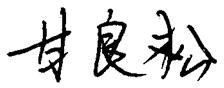 甘良松